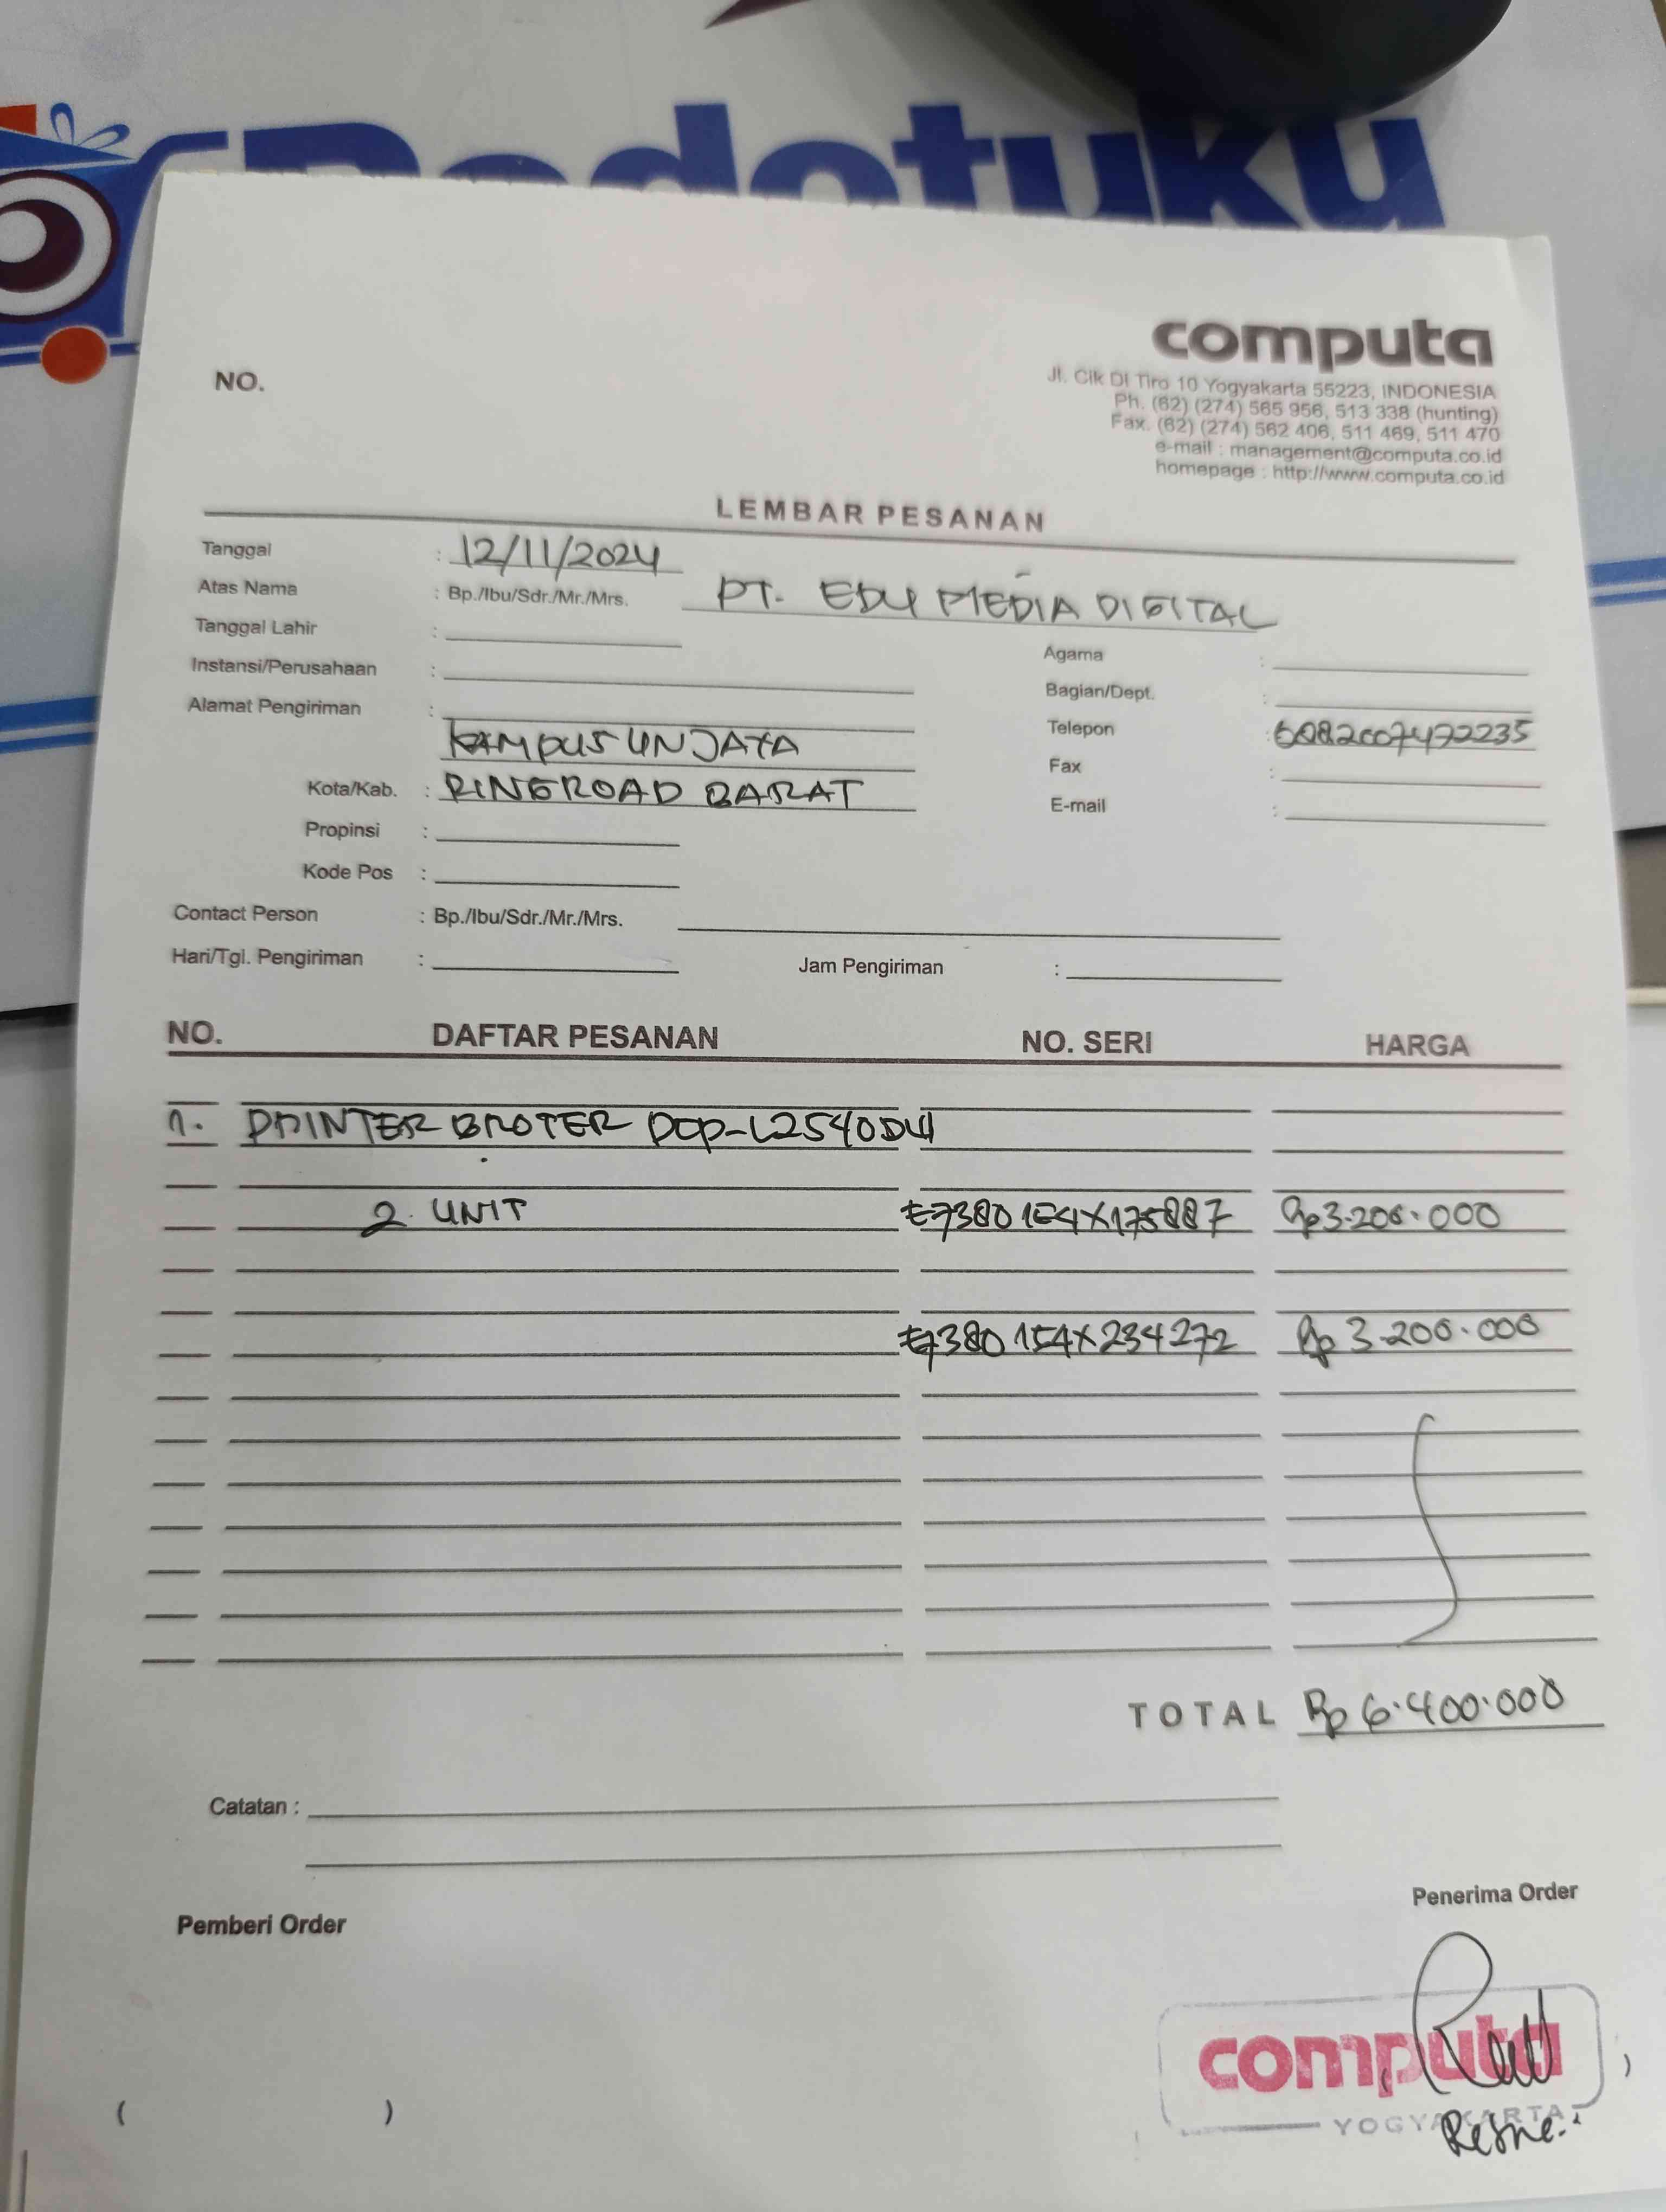 Dodotuku
computa
NO.
Jl. Cik Di Tiro 10 Yogyakarta 55223, INDONESIA
Ph. (62) (274) 565 956, 513 338 (hunting)
Fax. (62) (274) 562 406, 511 469, 511 470
e-mail : management@computa.co.id
homepage : http://www.computa.co.id
LEMBAR PESANAN
Tanggal : 12/11/2024
Atas Nama : Bp./Ibu/Sdr./Mr./Mrs. PT. EDU MEDIA DIGITAL
Tanggal Lahir :
Agama :
Instansi/Perusahaan :
Bagian/Dept. :
Alamat Pengiriman :
Telepon :
KAMPUS UNJAYA
Fax :
Kota/Kab. : RINGROAD BARAT
E-mail :
Propinsi :
Kode Pos :
Contact Person : Bp./Ibu/Sdr./Mr./Mrs.
Hari/Tgl. Pengiriman : Jam Pengiriman :
NO. DAFTAR PESANAN NO. SERI HARGA
1. PRINTER BROTER DCP-L2540DW
2 UNIT E73801E4X175887 Rp 3.200.000
E73801E4X234272 Rp 3.200.000
TOTAL Rp 6.400.000
Catatan :
Penerima Order
Pemberi Order
computa
YOGYAKARTA
( )
( )